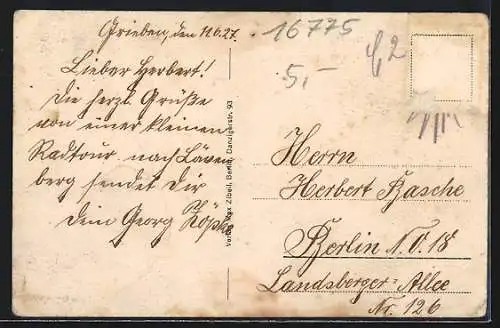 Grieben, den 11.6.27.
16775
5,-
Lieber Herbert!
Die herzl. Grüße
von einer kleinen
Radtour nach Löwen
berg sendet Dir
Dein Georg
Verlag Max Zibell, Berlin, Danzigerstr. 93
Herrn
Herbert Basche
Berlin N.O.18
Landsberger-Allee
Nr. 126